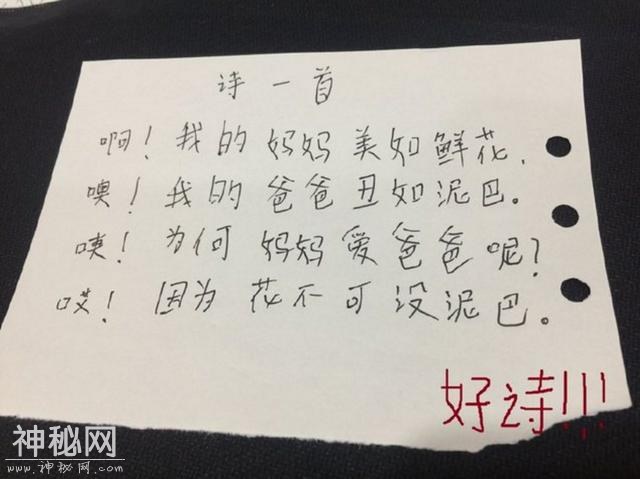 诗一首
啊！我的妈妈美如鲜花，
噢！我的爸爸丑如泥巴。
咦！为何妈妈爱爸爸呢？
哎！因为花不可没泥巴。
好诗!!!
神秘网
www.神秘网.com